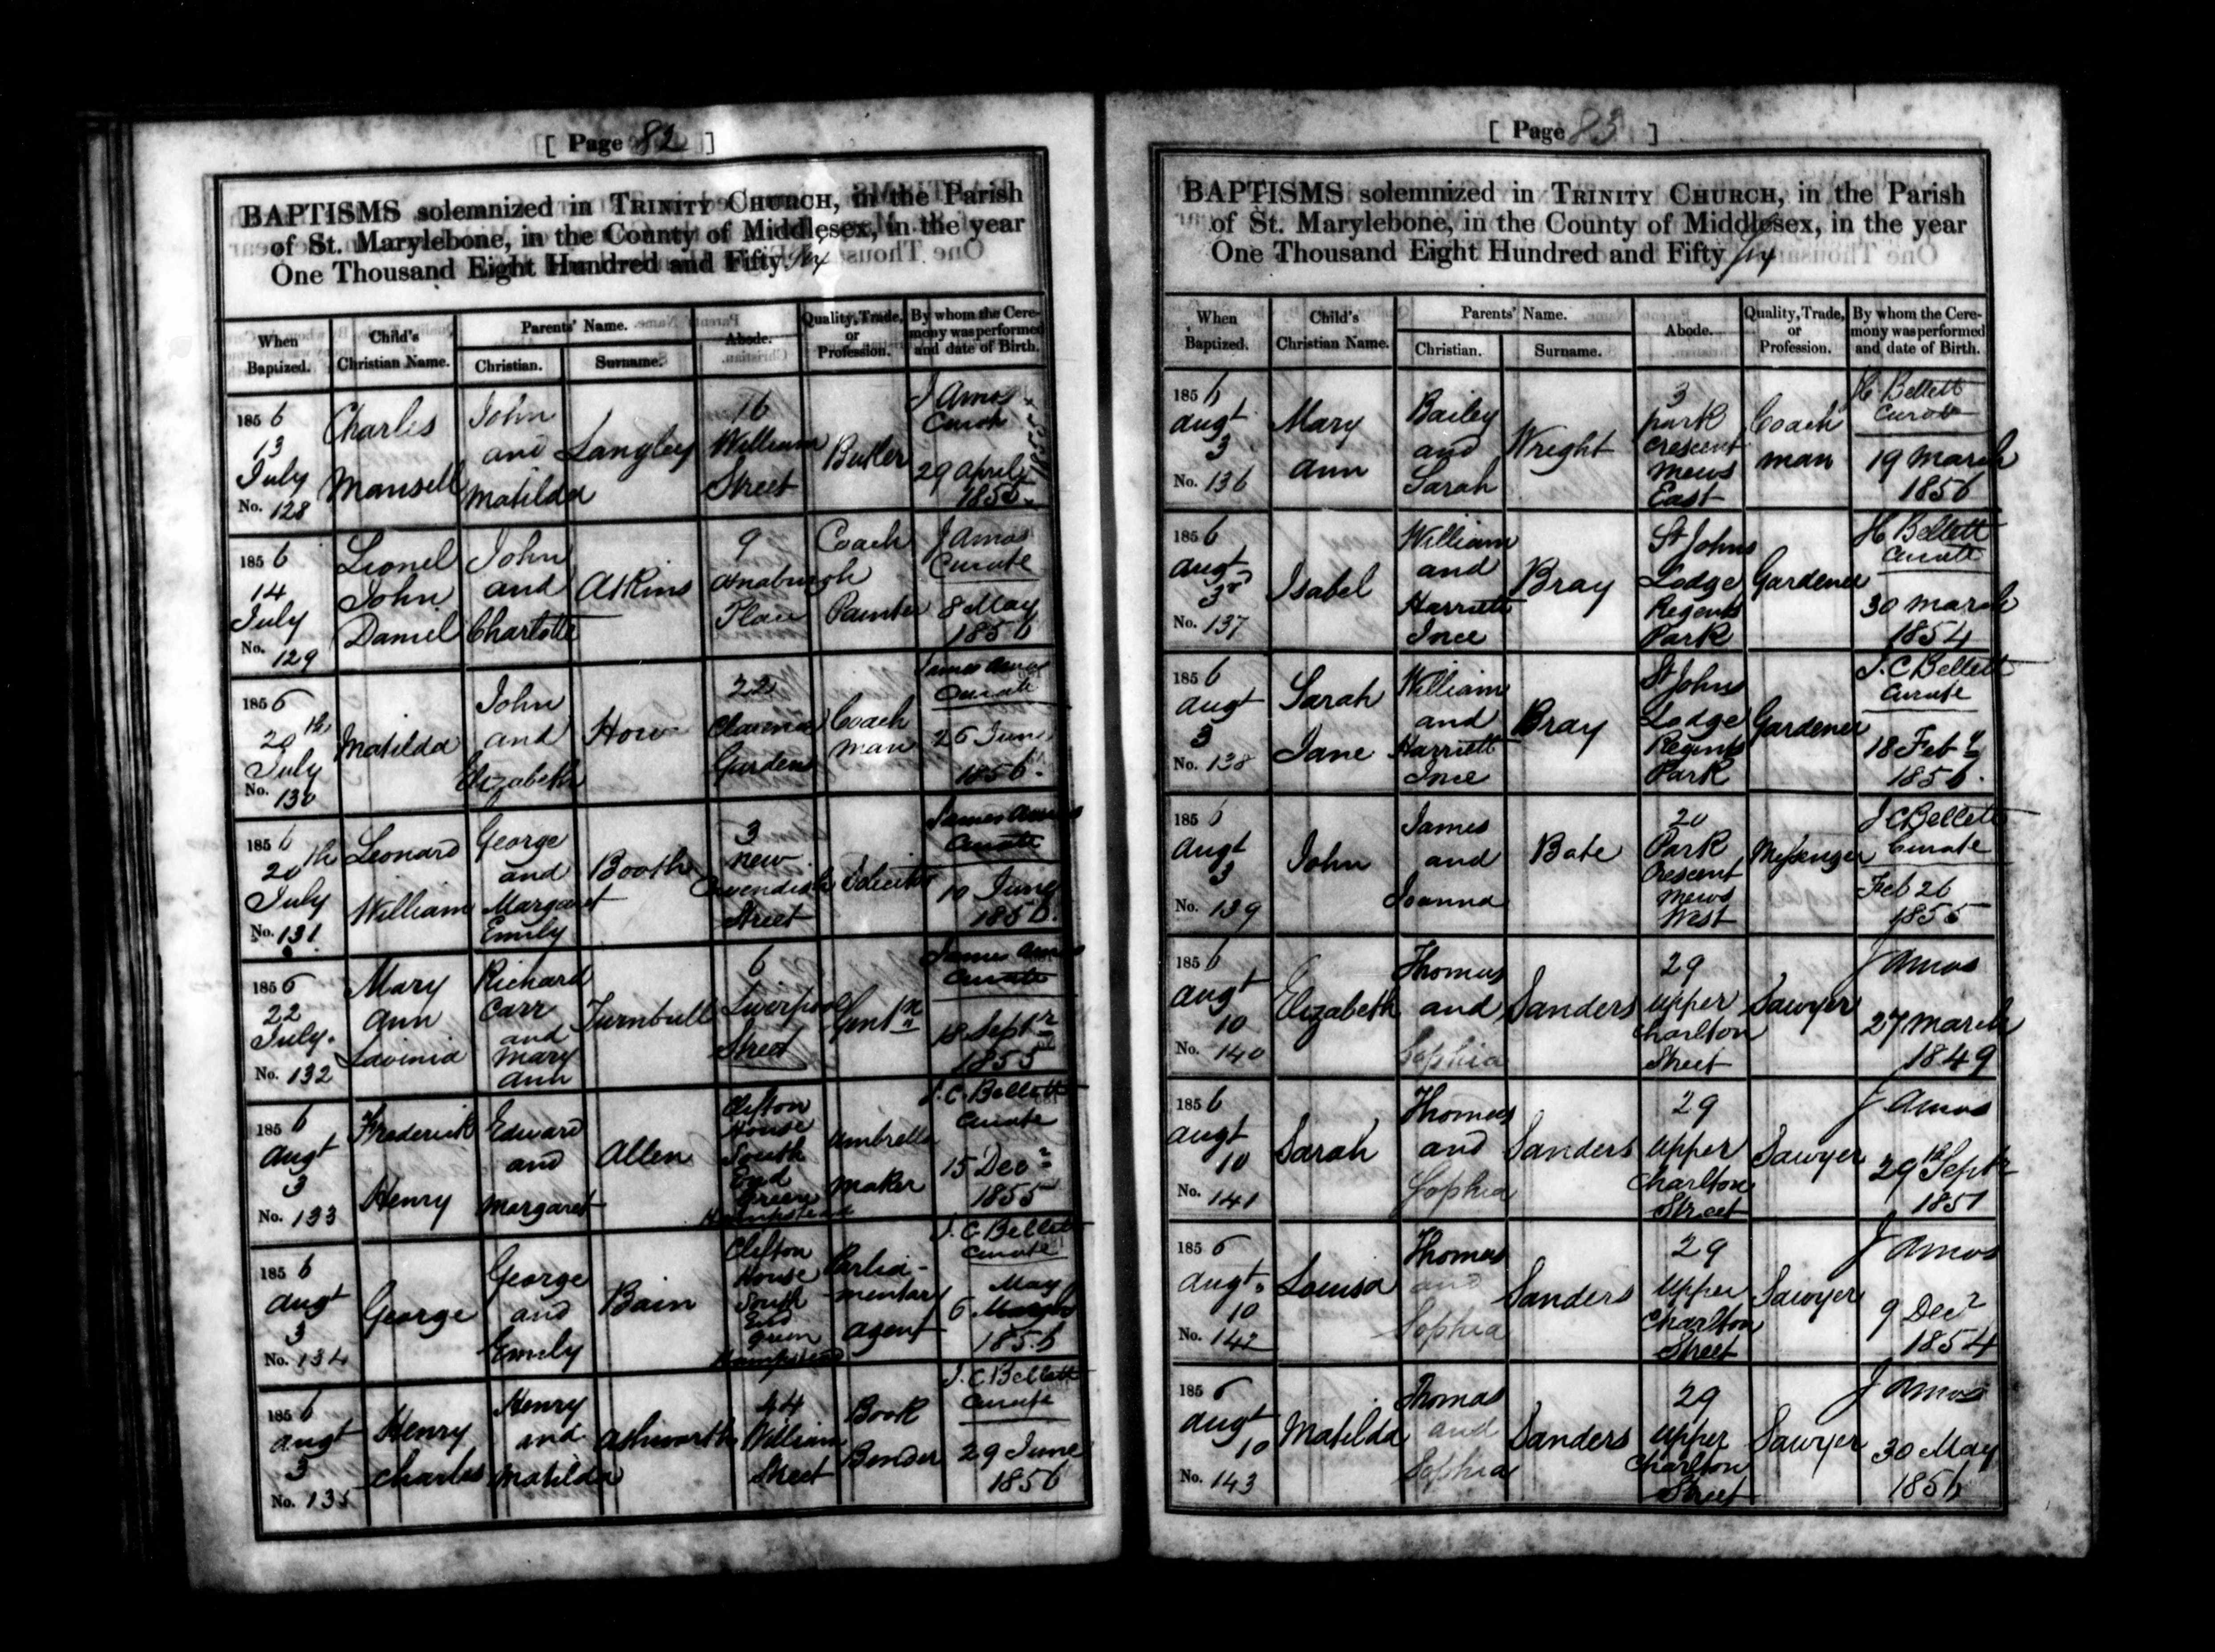 [ Page 82 ]
BAPTISMS solemnized in TRINITY CHURCH, in the Parish
of St. Marylebone, in the County of Middlesex, in the year
One Thousand Eight Hundred and Fifty Six
When Baptized.
Child's Christian Name.
Parents' Name.
Christian.
Surname.
Abode.
Quality, Trade, or Profession.
By whom the Ceremony was performed and date of Birth.
1856
13
July
No. 128
Charles
Mansell
John
and
Matilda
Langley
16
William
Street
Butler
J Amos
Curate
29 April
1855
1856
14
July
No. 129
Lionel
John
Daniel
John
and
Charlotte
Atkins
9
Osnaburgh
Place
Coach
Painter
J Amos
Curate
8 May
1856
1856
20th
July
No. 130
Matilda
John
and
Elizabeth
How
22
Clarence
Gardens
Coach
man
James Amos
Curate
26 June
1856
1856
20th
July
No. 131
Leonard
William
George
and
Margaret
Emily
Booth
3
New
Cavendish
Street
Solicitor
James Amos
Curate
10 June
1856.
1856
22
July.
No. 132
Mary
Ann
Lavinia
Richard
Carr
and
Mary
Ann
Turnbull
6
Liverpool
Street
Gentn
James Amos
Curate
18 Septr
1855
1856
Augt
3
No. 133
Frederick
Henry
Edward
and
Margaret
Allen
Clifton
House
South
End
Green
Hampstead
Umbrella
Maker
J. C. Bellett
Curate
15 Decr
1855
1856
Augt
3
No. 134
George
George
and
Emily
Bain
Clifton
House
South
End
Green
Hampstead
Parlia-
mentary
Agent
J. C. Bellett
Curate
May
6 March
1856
1856
Augt
3
No. 135
Henry
Charles
Henry
and
Matilda
Ashworth
44
William
Street
Book
Binder
J. C. Bellett
Curate
29 June
1856
[ Page 83 ]
BAPTISMS solemnized in TRINITY CHURCH, in the Parish
of St. Marylebone, in the County of Middlesex, in the year
One Thousand Eight Hundred and Fifty Six
When Baptized.
Child's Christian Name.
Parents' Name.
Christian.
Surname.
Abode.
Quality, Trade, or Profession.
By whom the Ceremony was performed and date of Birth.
1856
Augt
3
No. 136
Mary
Ann
Bailey
and
Sarah
Wright
3
Park
Crescent
Mews
East
Coach
man
Bellett
Curate
19 March
1856
1856
Augt
3
No. 137
Isabel
William
and
Harriett
Ince
Bray
St Johns
Lodge
Regents
Park
Gardener
Bellett
Curate
30 March
1854
1856
Augt
3
No. 138
Sarah
Jane
William
and
Harriett
Ince
Bray
St Johns
Lodge
Regents
Park
Gardener
J. C. Bellett
Curate
18 Feby
1856.
1856
Augt
3
No. 139
John
James
and
Joanna
Bate
20
Park
Crescent
Mews
West
Messenger
J C Bellett
Curate
Feb 26
1855
1856
Augt
10
No. 140
Elizabeth
Thomas
and
Sophia
Sanders
29
Upper
Charlton
Street
Sawyer
J Amos
27 March
1849
1856
Augt
10
No. 141
Sarah
Thomas
and
Sophia
Sanders
29
Upper
Charlton
Street
Sawyer
J Amos
29th Septr
1851
1856
Augt.
10
No. 142
Louisa
Thomas
and
Sophia
Sanders
29
Upper
Charlton
Street
Sawyer
J Amos
9 Decr
1854
1856
Augt
10
No. 143
Matilda
Thomas
and
Sophia
Sanders
29
Upper
Charlton
Street
Sawyer
J Amos
30 May
1856